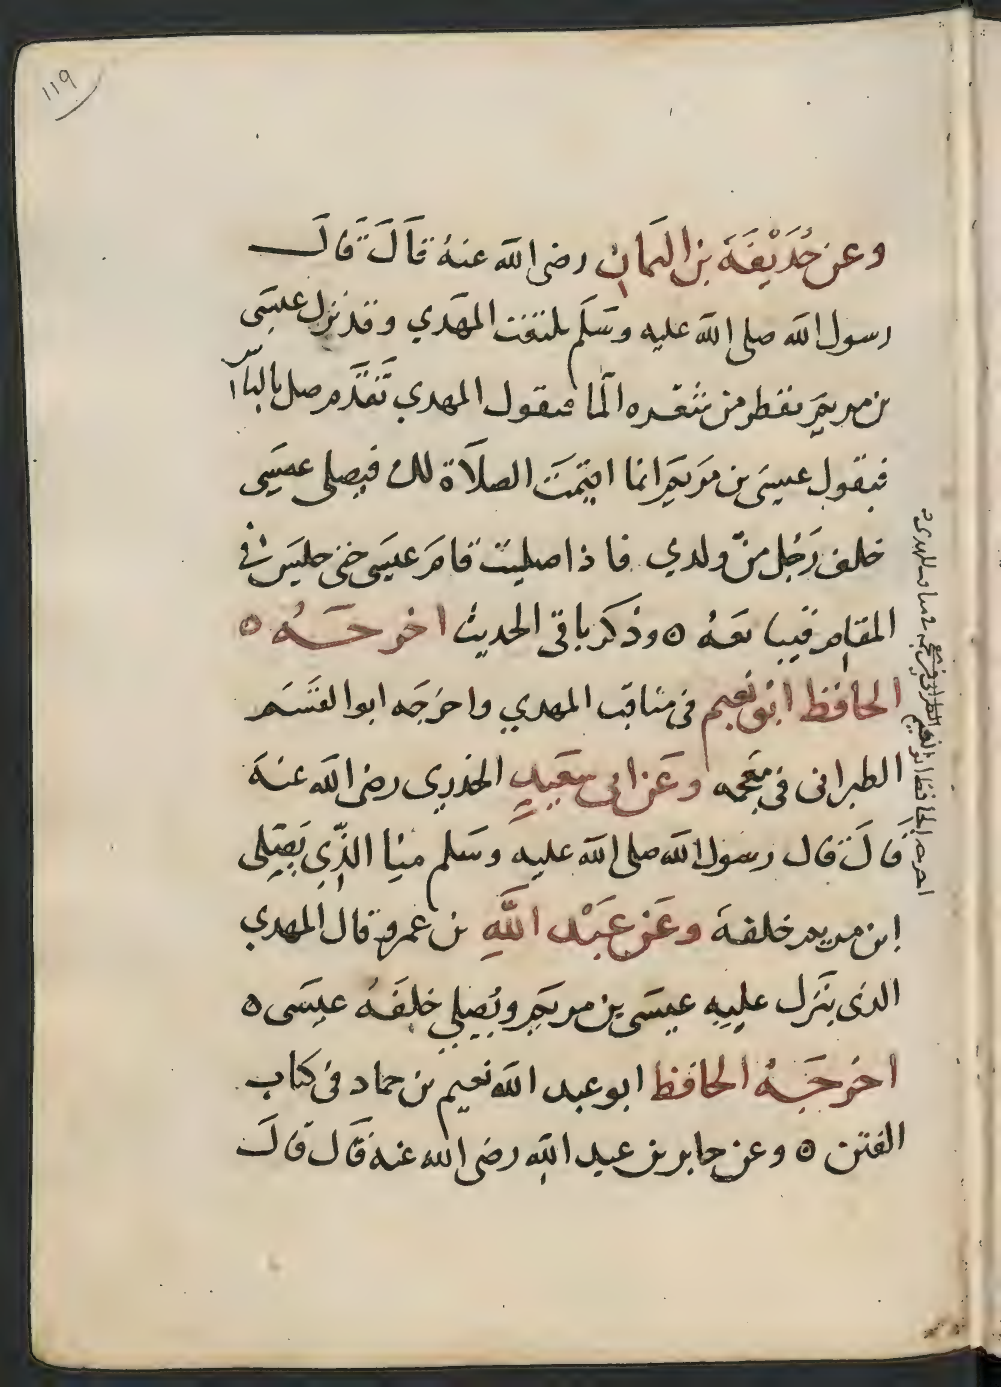 ١١٩
وعن حُذَيْفَة بن اليمان رضى الله عنهُ قَالَ قَالَ
رسول الله صلى الله عليه وسَلّم يلتفت المهَدي وقد نزل عيسَى
بن مريم يقطر من شعره المآ فيقول المهدي تَقَدَّم صل بالناس
فيقول عيسىَ بن مَريم انما اقيمَت الصلاَة لك فيصلى عيسَي
خلف رَجُل من ولدي فاذا صليت قامَ عيَسى حتى جليَس فى
المقام فيبايعَهُ ٥ وذكر باقى الحديث اخرجَـهُ ٥
الحافظ ابو نعيم فى مناقب المهدي واخرَجَه ابو القسَم
الطبرانى فى معجمه وعَن ابى سعَيدٍ الخدرى رضى الله عنهَ
قَالَ قال رسول الله صلى الله عليه وسَلم منا الذِّي يَصِلى
ابن مريم خلفهَ وعَن عَبْد اللَّهِ بن عمرو قال المهدي
الذى ينَزل عليه عيسَى بن مريَم ويُصلي خلفَهُ عيسَى ٥
اخرجَهُ الحافظ ابو عبد الله نعيم بن حماد فى كتاب
الفتن ٥ وعن جابر بن عبد الله رضى الله عنه قَال قالَ
اخرجه الحافظ ابو نعيم